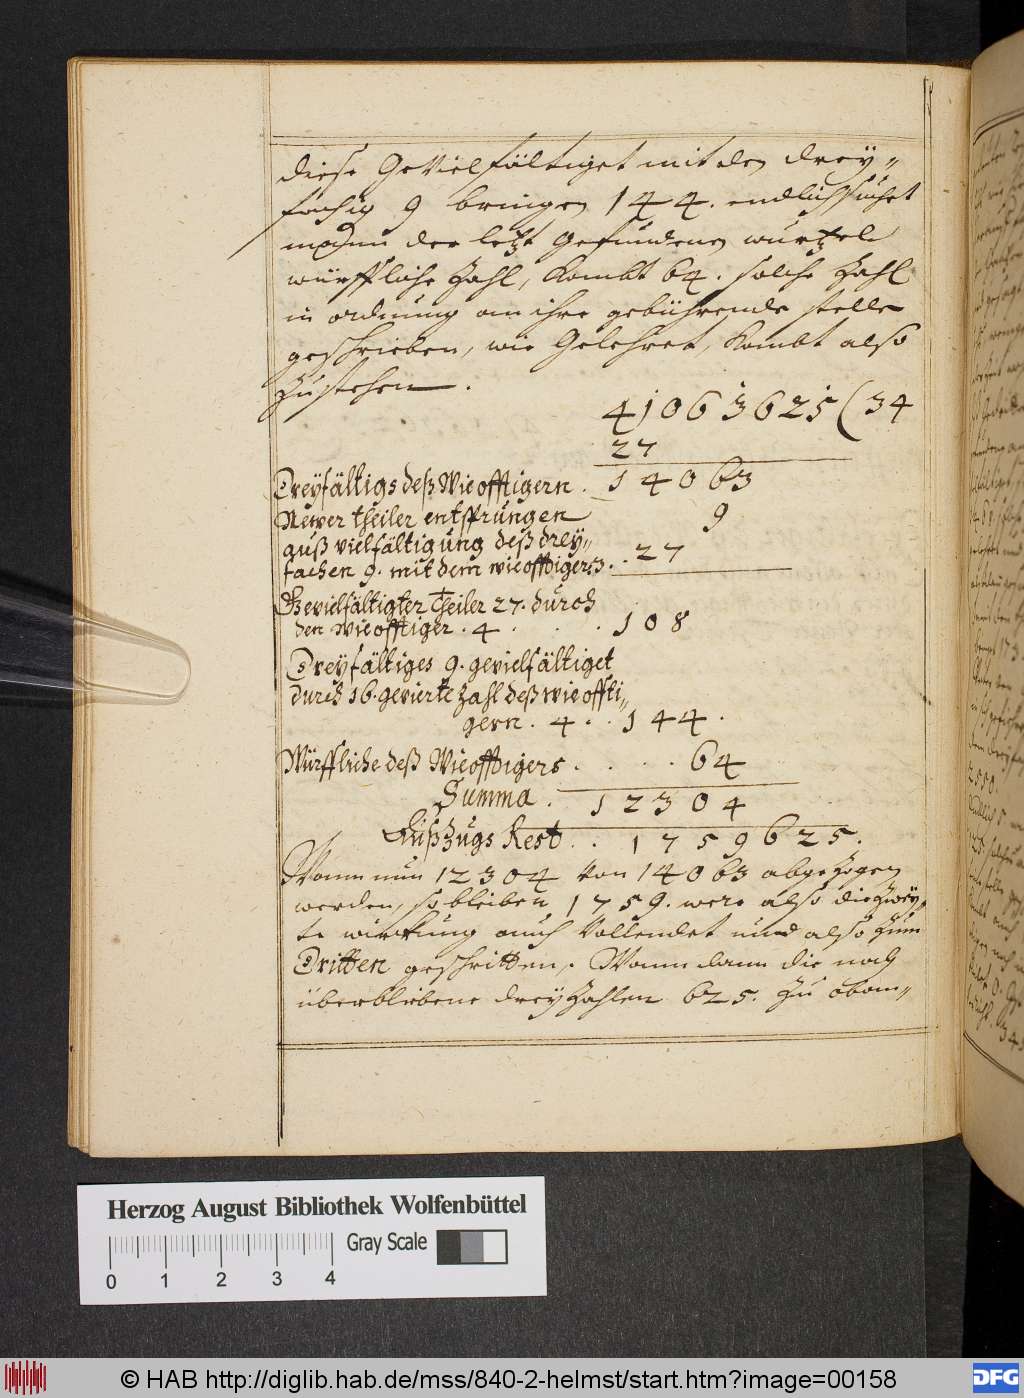 diese Gevielfältiget mit den drey„
fachig 9 bringen 144. endlich suchet
man nun der letzt gefundenen wurtzel
würffliche Zahl, kombt 64. solche Zahl
in ordnung an ihre gebührende stelle
geschrieben, wie Gelehret, kombt also
Zustehen.
41063625 (34
27
Dreyfältigs deß Wieofftigern . 14063
Newer theiler entsprungen 9
auß vielfältigung deß drey„
fachen 9. mit dem wieofftigern 3. . 27
Gevielfältigter Theiler 27. durch
den wieofftiger . 4 . . . 108
Dreyfältiges 9. gevielfältiget
durch 16. gevierte Zahl deß wieoffti„
gern . 4 . . 144.
Würffliche deß Wieofftigers . . . . 64
Summa . 12304
Außzugs Rest . . 1759625.
Wann nun 12304 von 14063 abgezogen
werden, so bleiben 1759. were also die Zwey„
te wirkung auch Vollendet und also Zum
Dritten geschritten. Wann dann die noch
überbliebene drey Zahlen 625. Zu oban„
Herzog August Bibliothek Wolfenbüttel
Gray Scale
0 1 2 3 4
© HAB http://diglib.hab.de/mss/840-2-helmst/start.htm?image=00158
DFG